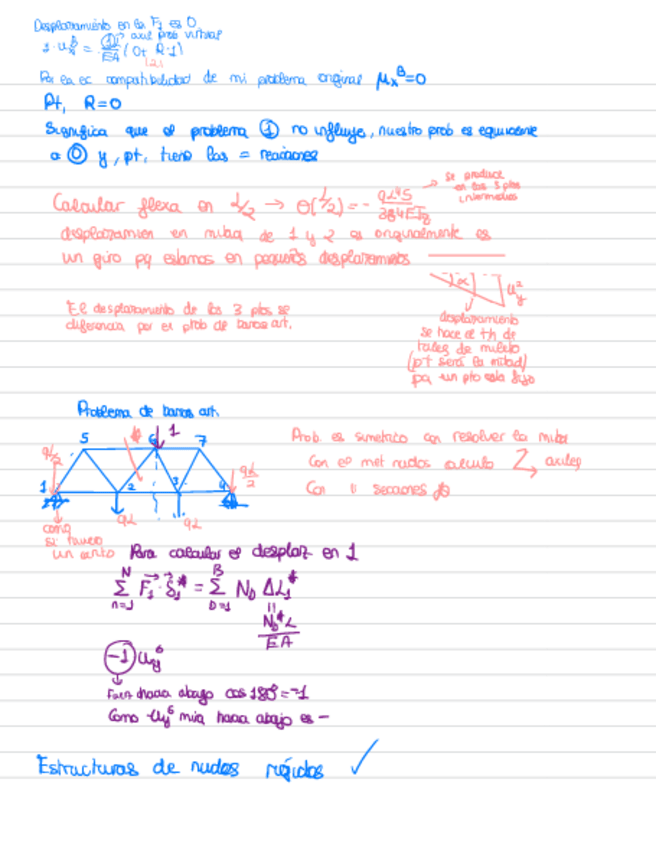 Desplazamiento en la F₁ es 0
→ aux prob virtual
1·u_x^B = (1)L/EA (0+ R·1)
Por la ec compatibilidad de mi problema original μ_x^B=0
Pt, R=0
Significa que el problema ① no influye, nuestro prob es equivalente
a ⓪ y, pt, tiene las = reacciones
Calcular flexa en L/2 → θ(L/2) = - qL⁴5/384EI_z
→ se produce
en los 3 ptos
intermedios
desplazamien en mitad de 1 y 2 es originalmente es
un giro pq estamos en pequeños desplazamientos
α u_y^2
El desplazamiento de los 3 ptos se
diferencia por el prob de barras art.
desplazamiento
se hace el th de
tales de mileto
(pt será la mitad)
pq un pto esta fijo
Problema de barras art.
5 6 1 7
qL/2 1 2 3 4 qL/2
qL qL
como
si tuviera
un canto
Prob. es simetrico con resolver la mitad
Con el met nudos calculo Σ axiles
Con secciones
Para calcular el desplaz en 1
N Σ n=1 F₁·δ₁* = B Σ b=1 N_b ΔL₁*
=
N_b* L
EA
(-1) u_y^6
Fuerz hacia abajo cos 180º=-1
Como u_y^6 mira hacia abajo es -
Estructuras de nudos rígidos ✓